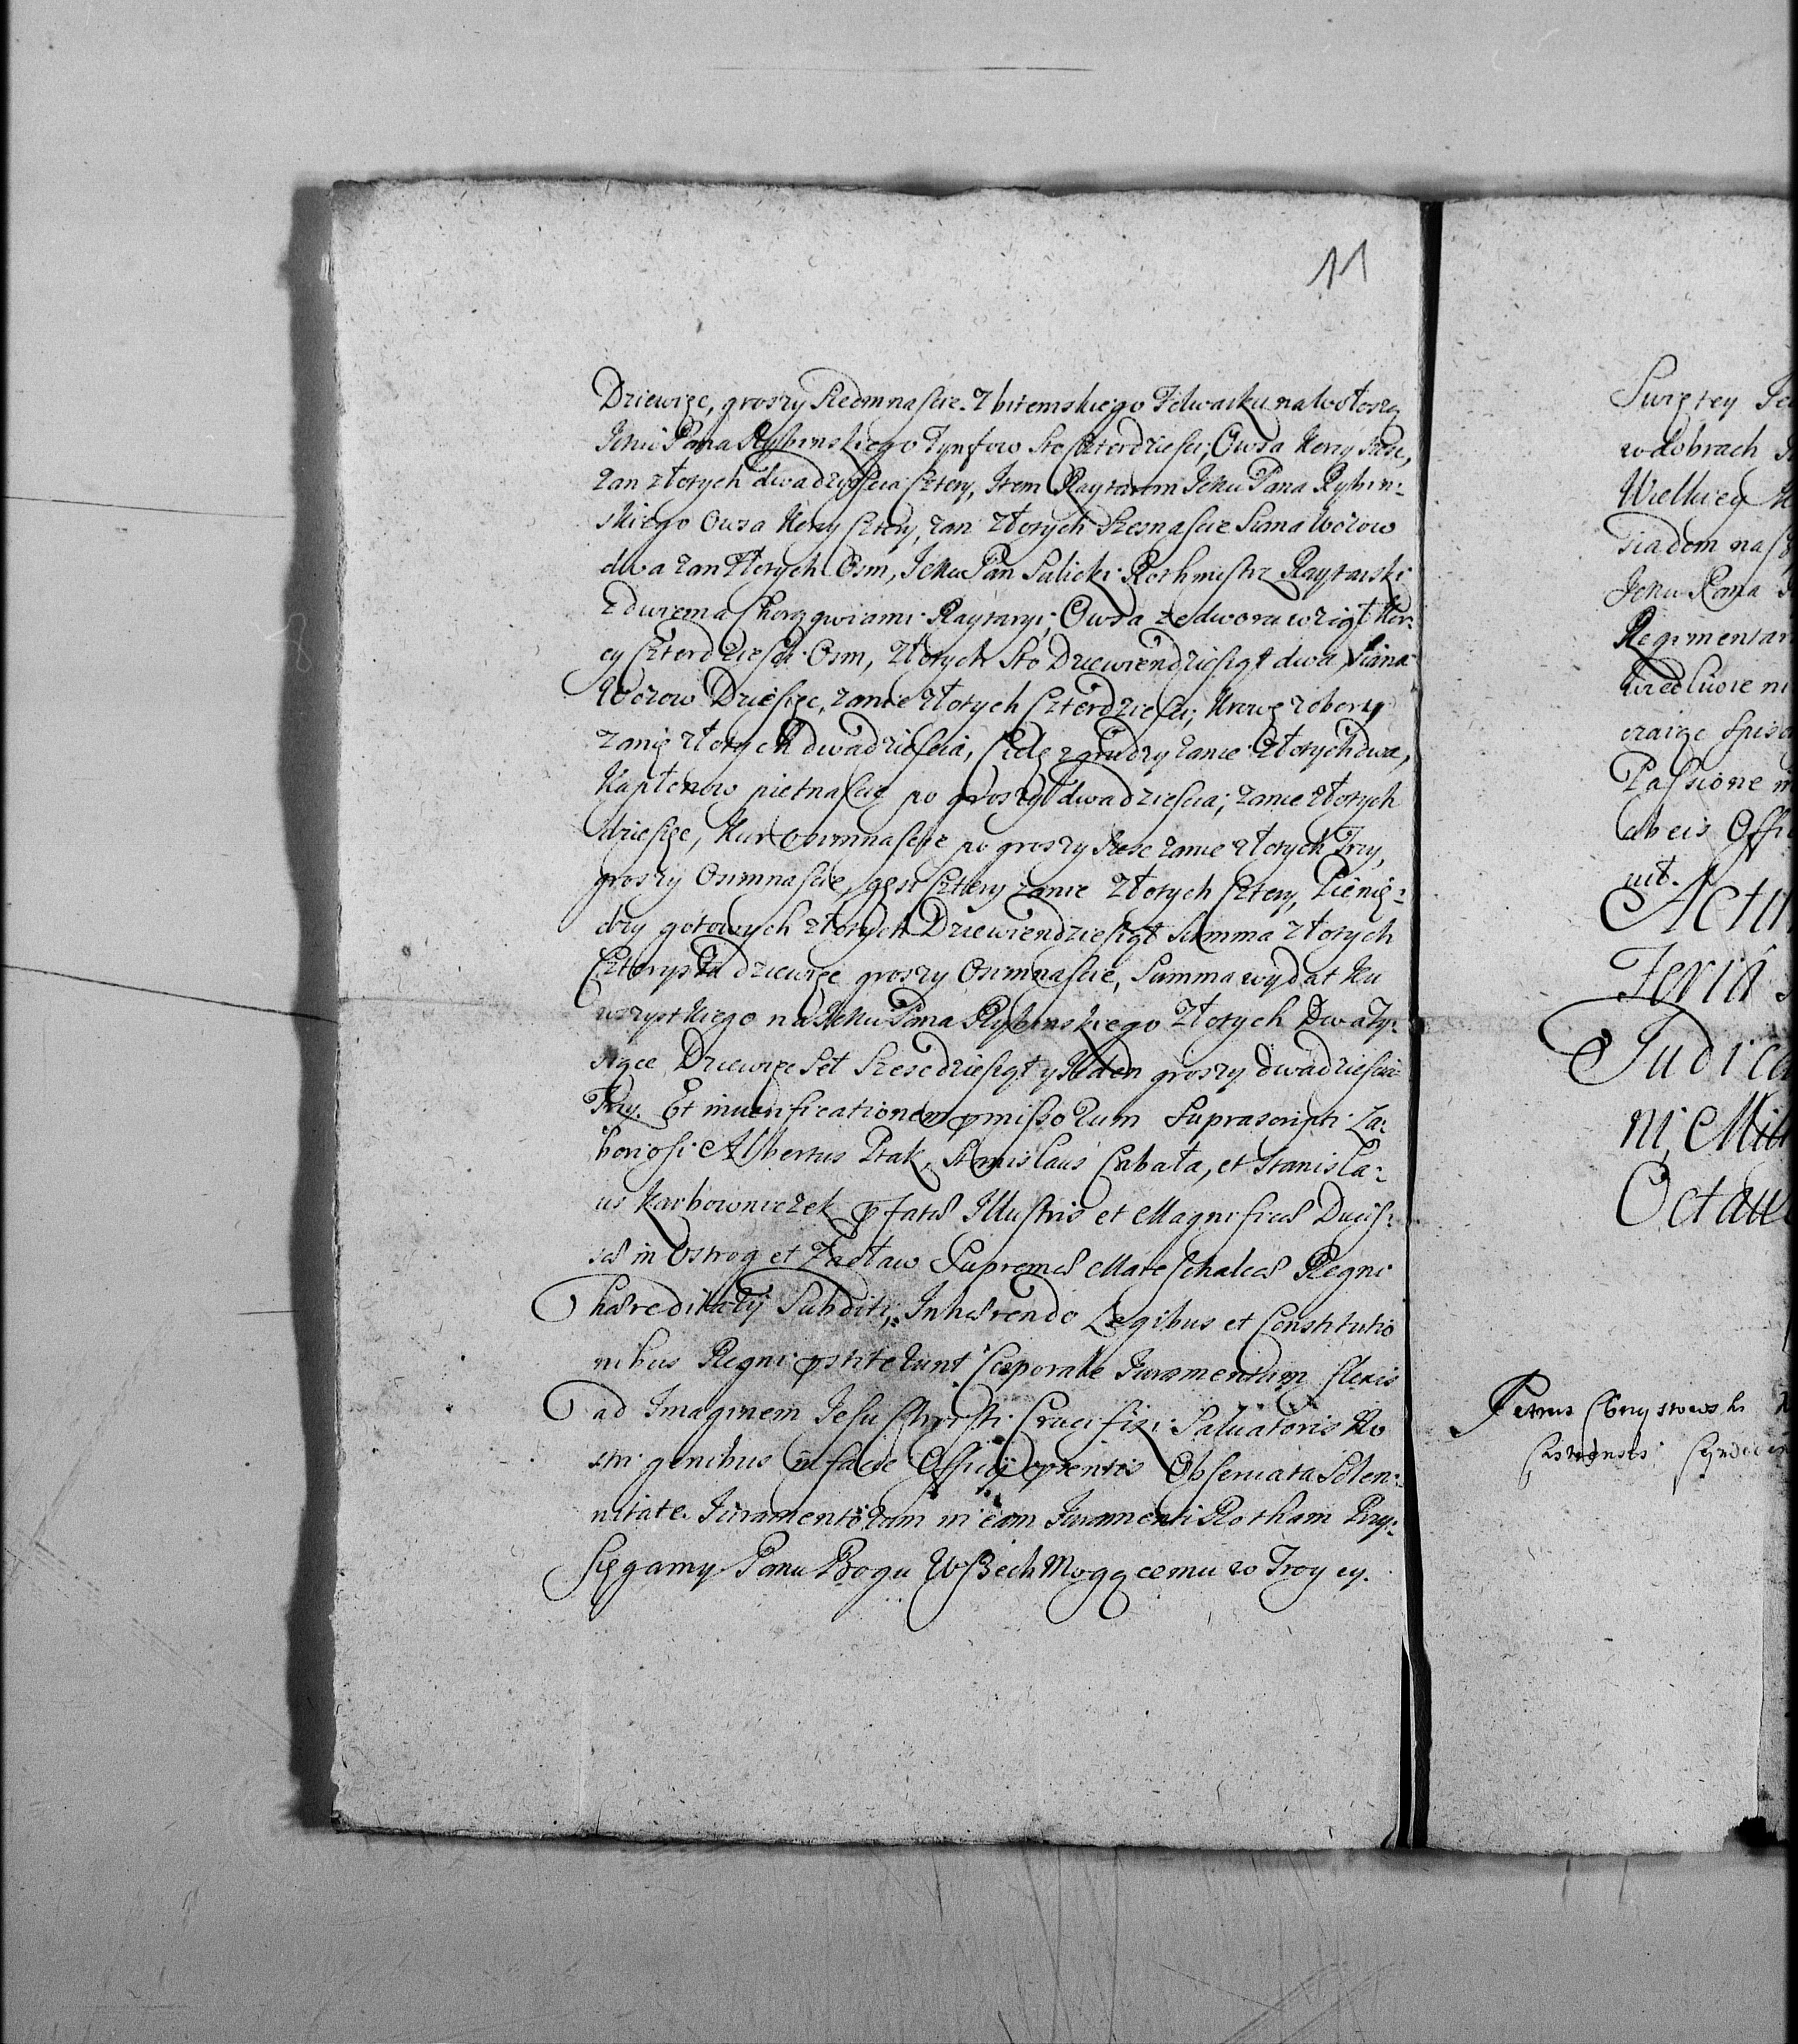 11
Dziewięc, groszy Siedmnascie. Zbitemskiego Folwarku na Wołoszą
JeMci Pana Rybinskiego Tynfow Sto Czterdziesci, Owsa Korcy Szesc,
zan złotych dwadziescia Cztery, Item Raytarom JeMci Pana Rybin:
skiego Owsa Korcy Cztery, zan Złotych Szesnascie Siana Wozow
dwa zan Złotych Osm, JeMci Pan Sulicki Rothmistrz Raytarski
Z dwiema Chorągwiami Raytaryi; Owsa ze dworu wziął Kor:
cy Czterdziesci Osm, Złotych Sto Dziewiendziesiąt dwa, Siana
Wozow Dziesięc, zanie złotych Czterdziesci, Krowę z obory
zanię złotych dwadziescia, Cielę zanie Złotych dwa,
Kapłonow pietnascie po groszy dwadziescia; zanie złotych
dziesięc, Kur Osimnascie po groszy Szesc zanie złotych Trzy,
groszy Osimnascie, gęsi Cztery zanie Złotych Cztery, Pienię:
dzy gotowych złotych Dziewiendziesiąt Summa złotych
Czterysta dziewięc groszy Osimnascie, Summa wydatku
wszystkiego na JeMci Pana Rybinskiego Złotych Dwa Ty:
siące Dziewięc Set Szescdziesiąt y Jeden groszy dwadziescia
Trzy. Et in verificationem pmissorum Suprascripti La:
boriosi Albertus Ptak, Stanislaus Cabała, et Stanisla:
us Karbowniczek pfatæ Illustris et Magnificæ Ducis:
sæ in Ostrog et Zasław Supremæ Mareschalcæ Regni
hæreditarij Subditi, Inhærendo Legibus et Constitutio
nibus Regni pstiterunt Corporale Juramentum flexis
ad Imaginem Jesu Christi Crucifixi Saluatoris No
stri genibus in facie Officij pntis Obseruata Solen:
nitate Juramentorum in eam Juramenti Rotham Przy:
sięgamy Panu Bogu Wszechmogącemu w Troycy.
Swiętey
w dobrach
Wielkiey
JeMci Pana
Regimentar
Passione
ab eis Offi
nit.
Actu
Feria
Judici
ni, Mil
Octau
Petrus